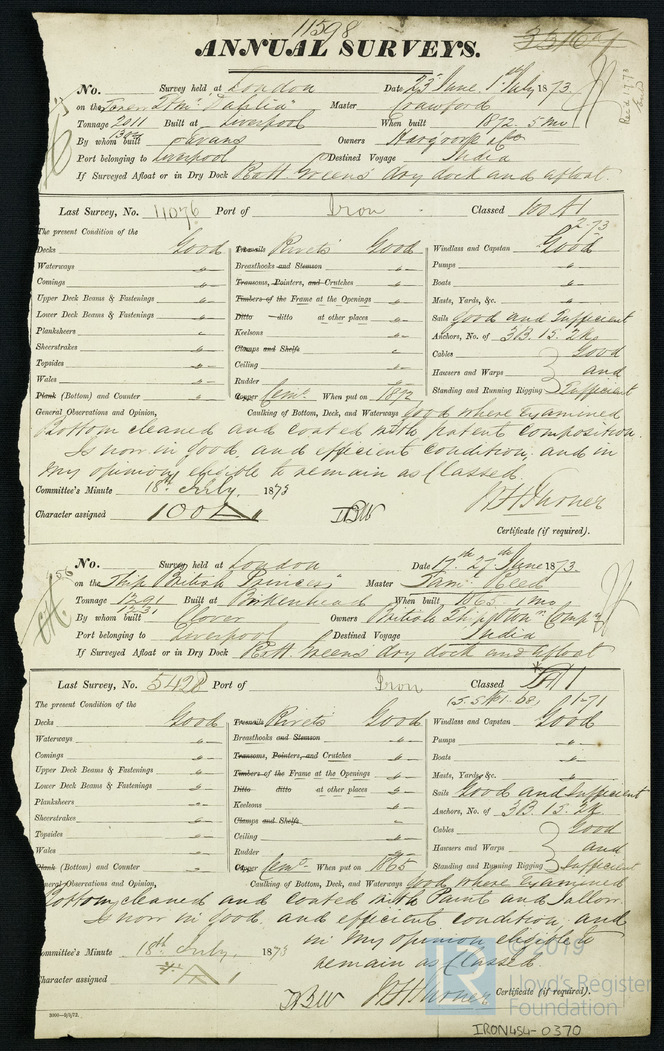 11598
ANNUAL SURVEYS.
No. Survey held at London Date 23 June, 1st July 1873.
on the "Dahlia" Master Crawford
Tonnage 2011 Built at Liverpool When built 1872. 5 mo
By whom built Evans Owners
Port belonging to Liverpool Destined Voyage India
If Surveyed Afloat or in Dry Dock R & H. Greens dry dock and afloat.
Rec'd 17.7.73
Last Survey, No. 11076 Port of Iron Classed 100 A1
2.73
The present Condition of the
Decks Good
Waterways "
Comings "
Upper Deck Beams & Fastenings "
Lower Deck Beams & Fastenings "
Planksheers "
Sheerstrakes "
Topsides "
Wales "
Plank (Bottom) and Counter "
Treenails Rivets Good
Breasthooks and Stemson "
Transoms, Pointers, and Crutches "
Timbers of the Frame at the Openings "
Ditto ditto at other places "
Keelsons "
Clamps and Shelfs "
Ceiling "
Rudder "
Copper Cemt. When put on 1872
Windlass and Capstan Good
Pumps "
Boats "
Masts, Yards, &c. "
Sails Good and Sufficient
Anchors, No. of 3B. 1S. 2K.
Cables Good
Hawsers and Warps and
Standing and Running Rigging Sufficient
General Observations and Opinion, Caulking of Bottom, Deck, and Waterways Good where Examined
Bottom cleaned and coated with patent composition.
Is now in good, and efficient condition, and in
my opinion, eligible to remain as Classed.
Committee's Minute 18th July, 1873
Character assigned 100A
Certificate (if required).
56
No. Survey held at London Date 17th. 27th June 1873.
on the Ship "British Princess" Master Reed
Tonnage 1291 Built at Birkenhead When built 1865. 1 mo
1231
By whom built Clover Owners British Ship Own. Comp.
Port belonging to Liverpool Destined Voyage India
If Surveyed Afloat or in Dry Dock R & H. Greens dry dock and afloat
Last Survey, No. 5428 Port of Iron Classed A1
1-71
The present Condition of the
Decks Good
Waterways "
Comings "
Upper Deck Beams & Fastenings "
Lower Deck Beams & Fastenings "
Planksheers "
Sheerstrakes "
Topsides "
Wales "
Plank (Bottom) and Counter "
Treenails Rivets Good
Breasthooks and Stemson "
Transoms, Pointers, and Crutches "
Timbers of the Frame at the Openings "
Ditto ditto at other places "
Keelsons "
Clamps and Shelfs "
Ceiling "
Rudder "
Copper Cemt. When put on 1865
Windlass and Capstan Good
Pumps "
Boats "
Masts, Yards, &c. "
Sails Good and Sufficient
Anchors, No. of 3B. 1S. 2K.
Cables Good
Hawsers and Warps and
Standing and Running Rigging Sufficient
General Observations and Opinion, Caulking of Bottom, Deck, and Waterways Good where Examined
Bottom cleaned and coated with Paint and Tallow.
Is now in good, and efficient condition, and
in my opinion eligible to
remain as Classed
Committee's Minute 18th July, 1873
Character assigned A1
Certificate (if required).
© 2019
Lloyd's Register
Foundation
IRON454-0370